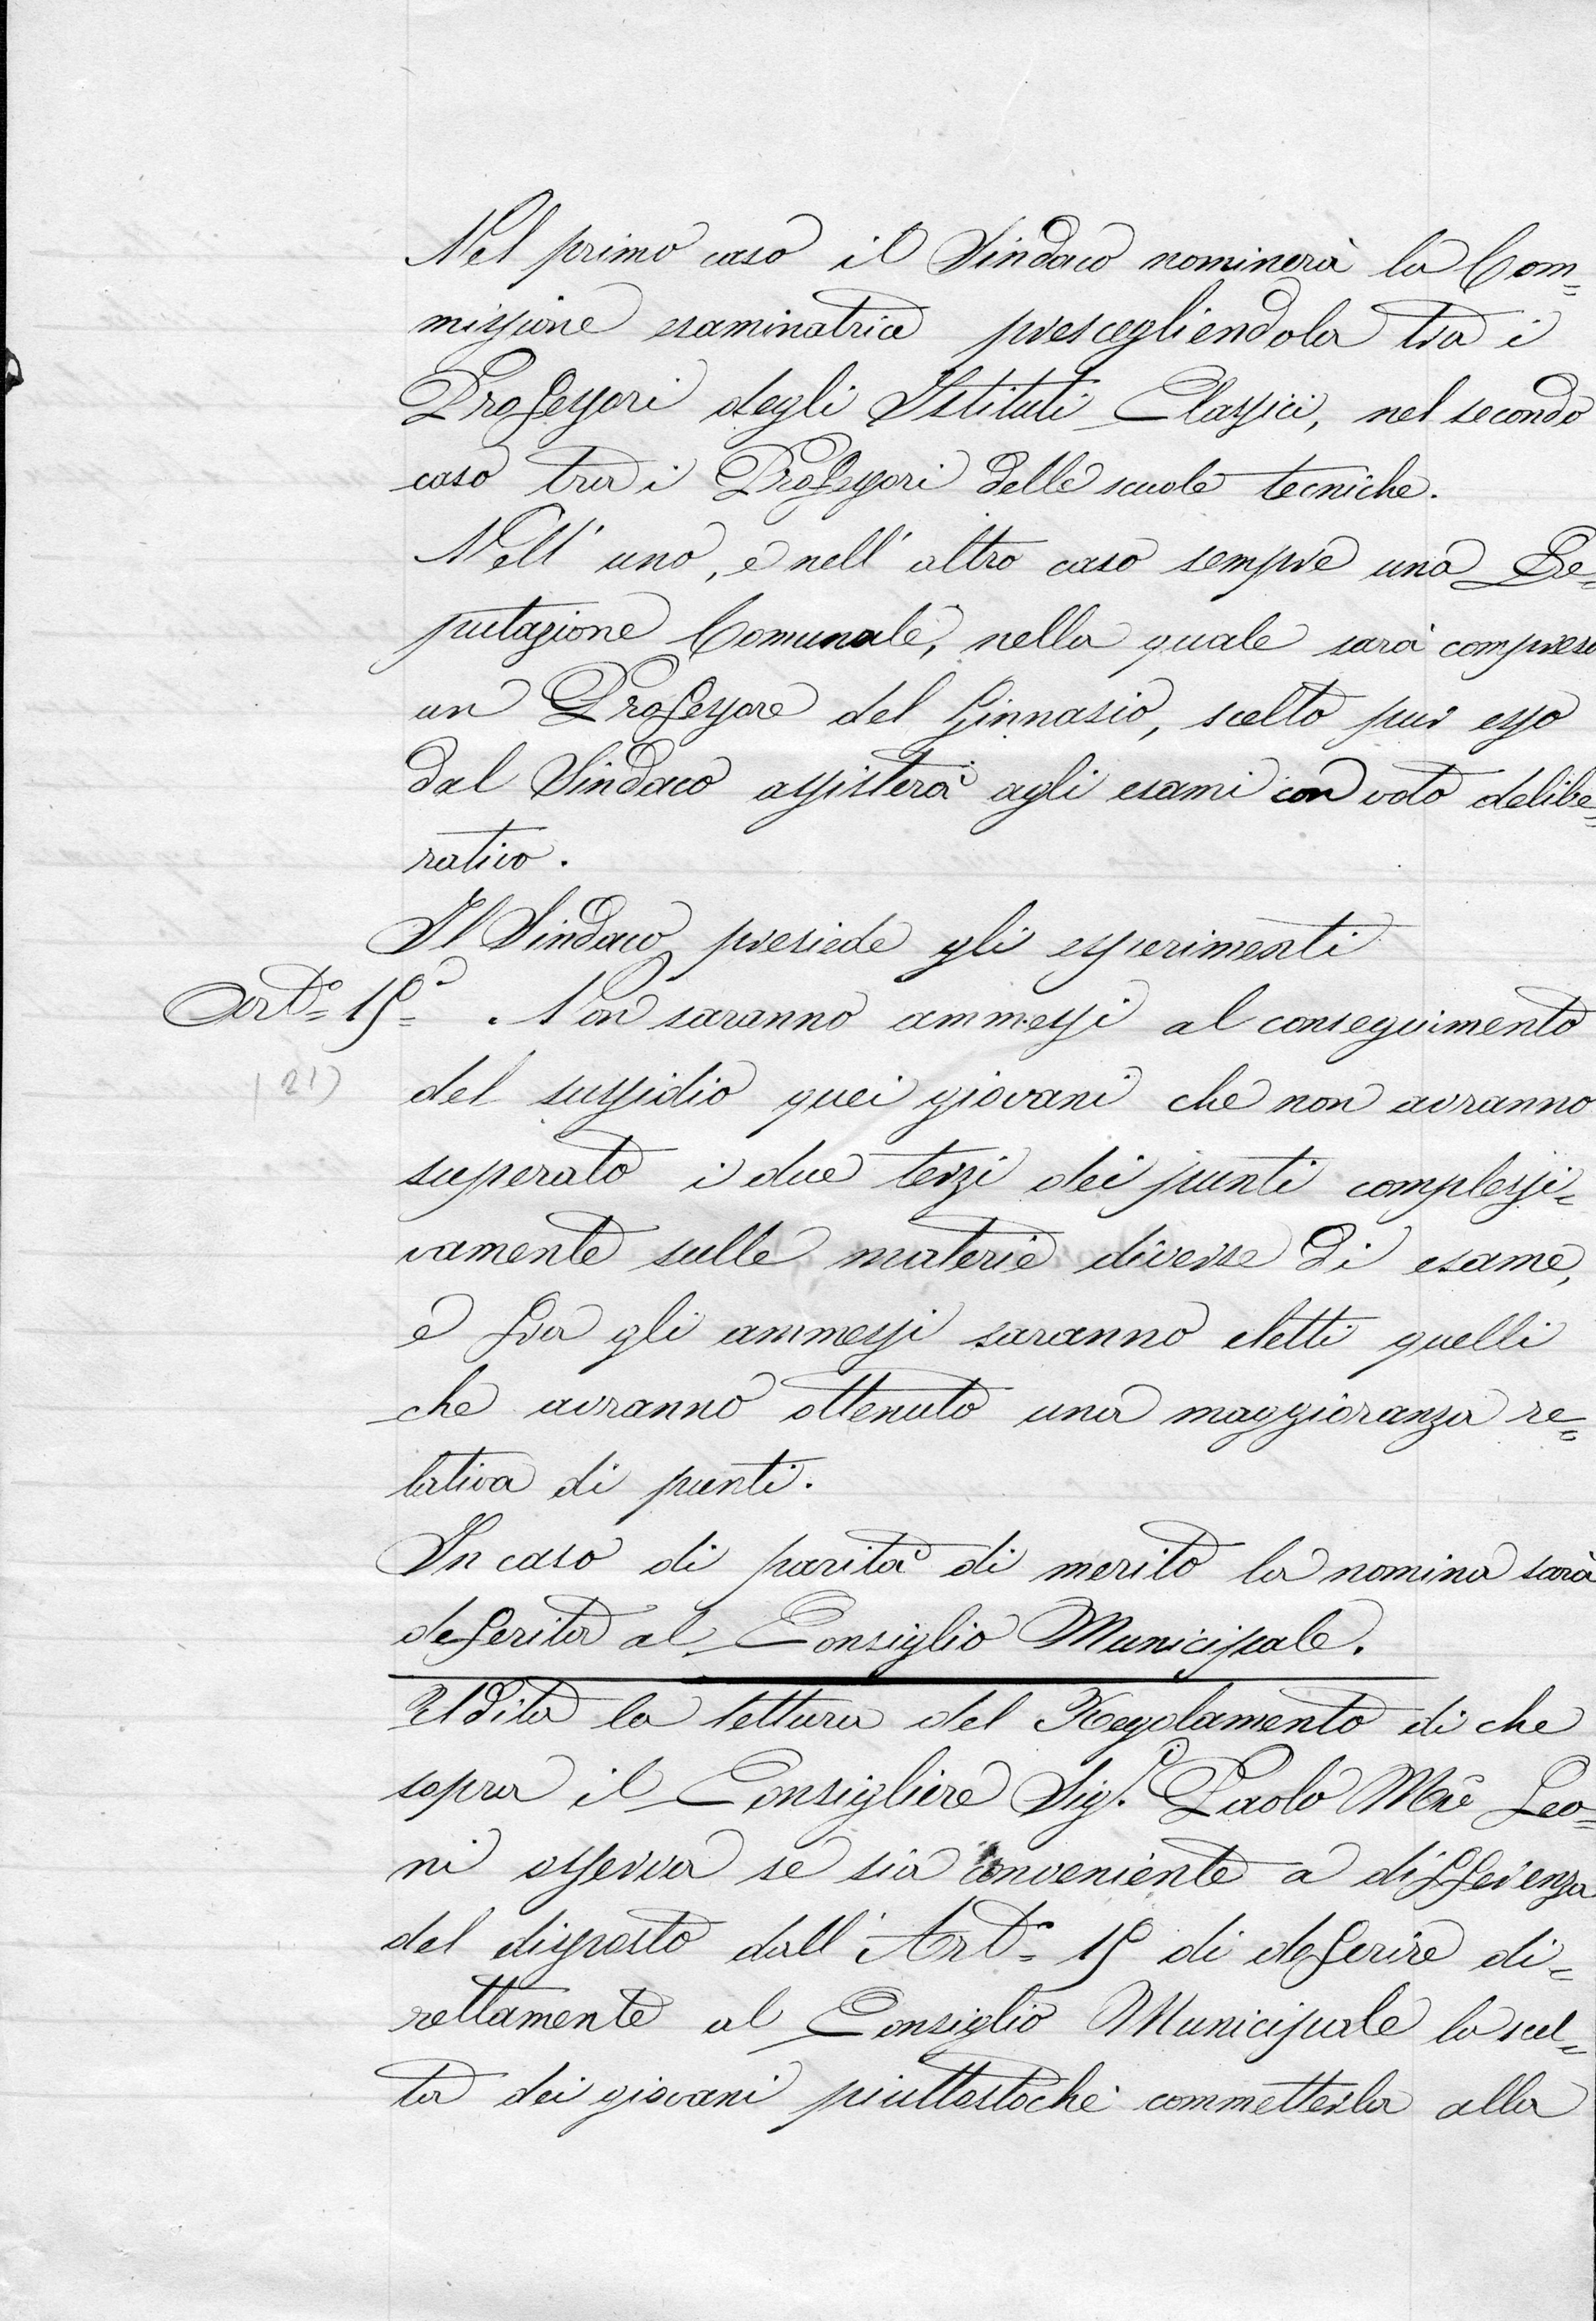 Nel primo caso il Sindaco nominerà la Com=
missione esaminatrice prescegliendola tra i
Professori degli Istituti Classici, nel secondo
caso tra i Professori delle scuole tecniche.
Nell' uno, e nell' altro caso sempre una De=
putazione Comunale, nella quale sarà compreso
un Professore del Ginnasio, scelto pur esso
dal Sindaco assisterà agli esami con voto delibe=
rativo.
Il Sindaco presiede gli esperimenti
Art.° 15° . Non saranno ammessi al conseguimento
(21) del sussidio quei giovani che non avranno
superato i due terzi dei punti complessi=
vamente sulle materie diverse di esame,
e fra gli ammessi saranno eletti quelli
che avranno ottenuto una maggioranza re=
lativa di punti.
In caso di parità di merito la nomina sarà
deferita al Consiglio Municipale.
Udita la lettura del Regolamento di che
sopra il Consigliere Sig.r Paolo Mse Leo=
ni osserva se sia conveniente a differenza
del disposto dall' Art.° 15 di deferire di=
rettamente al Consiglio Municipale la scel=
ta dei giovani piuttostochè commetterla alla